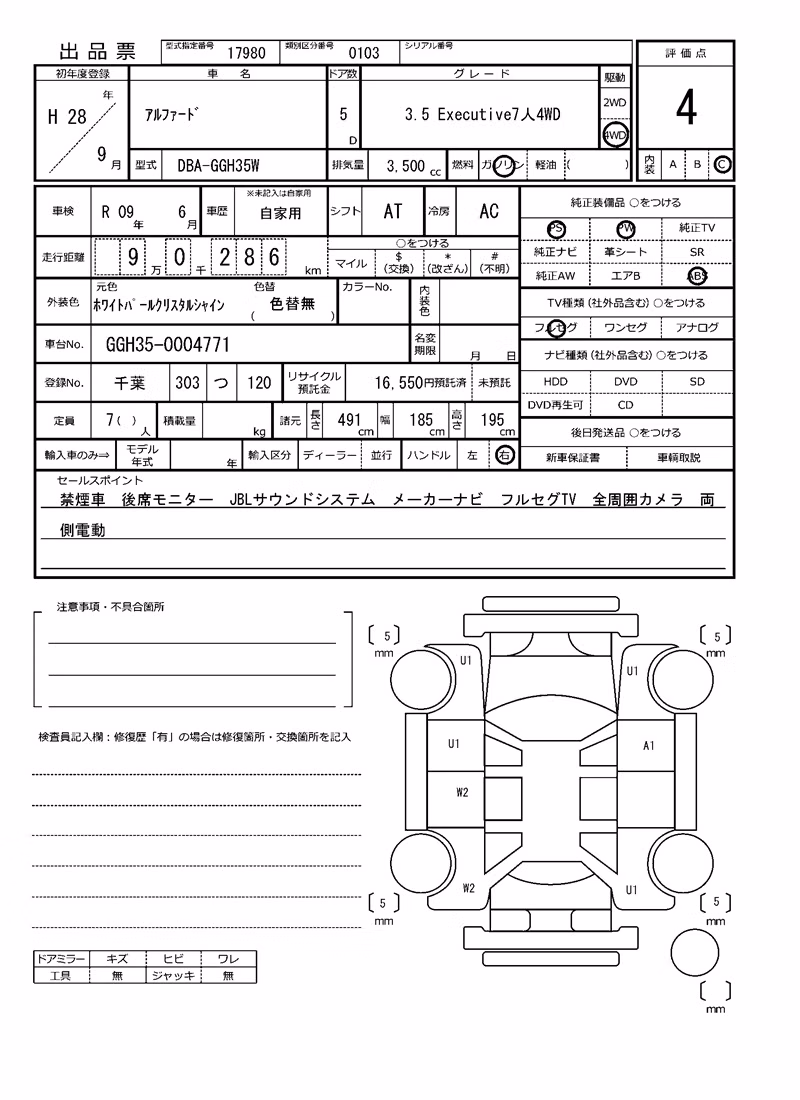 出品票 型式指定番号 17980 類別区分番号 0103 シリアル番号
評価点
4
内装 A B C
初年度登録 車名 ドア数 グレード 駆動
H 28 年 9 月
アルファード
5 D
3.5 Executive7人4WD
2WD
4WD
型式 DBA-GGH35W 排気量 3,500 cc 燃料 ガソリン 軽油 ( )
車検 R 09 年 6 月 車歴 ※未記入は自家用 自家用 シフト AT 冷房 AC
走行距離 9 万 0 千 2 8 6 km
○をつける
マイル $ (交換) * (改ざん) # (不明)
外装色 元色 ホワイトパールクリスタルシャイン 色替 ( 色替無 ) カラーNo. 内装色
車台No. GGH35-0004771 名変期限 月 日
登録No. 千葉 303 つ 120 リサイクル預託金 16,550円預託済 未預託
定員 7( ) 人 積載量 kg 諸元 長さ 491 cm 幅 185 cm 高さ 195 cm
輸入車のみ⇒ モデル年式 年 輸入区分 ディーラー 並行 ハンドル 左 右
純正装備品 ○をつける
PS PW 純正TV
純正ナビ 革シート SR
純正AW エアB ABS
TV種類(社外品含む)○をつける
フルセグ ワンセグ アナログ
ナビ種類(社外品含む)○をつける
HDD DVD SD
DVD再生可 CD
後日発送品 ○をつける
新車保証書 車輌取説
セールスポイント
禁煙車 後席モニター JBLサウンドシステム メーカーナビ フルセグTV 全周囲カメラ 両
側電動
注意事項・不具合箇所
検査員記入欄:修復歴「有」の場合は修復箇所・交換箇所を記入
ドアミラー キズ ヒビ ワレ
工具 無 ジャッキ 無
5 mm
5 mm
U1
U1
U1
A1
W2
W2
U1
5 mm
5 mm
mm